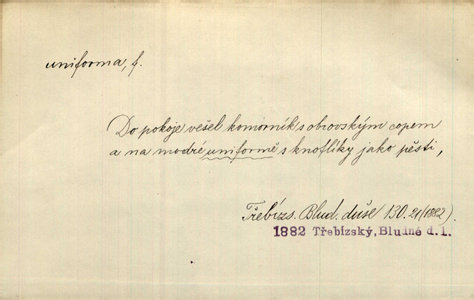 uniforma, f.
Do pokoje vešel komorník s obrovským copem
a na modré uniformě s knoflíky jako pěsti,
Třebízs. Blud. duše 130. 21 (1882).
1882 Třebízský, Bludné d. 1.